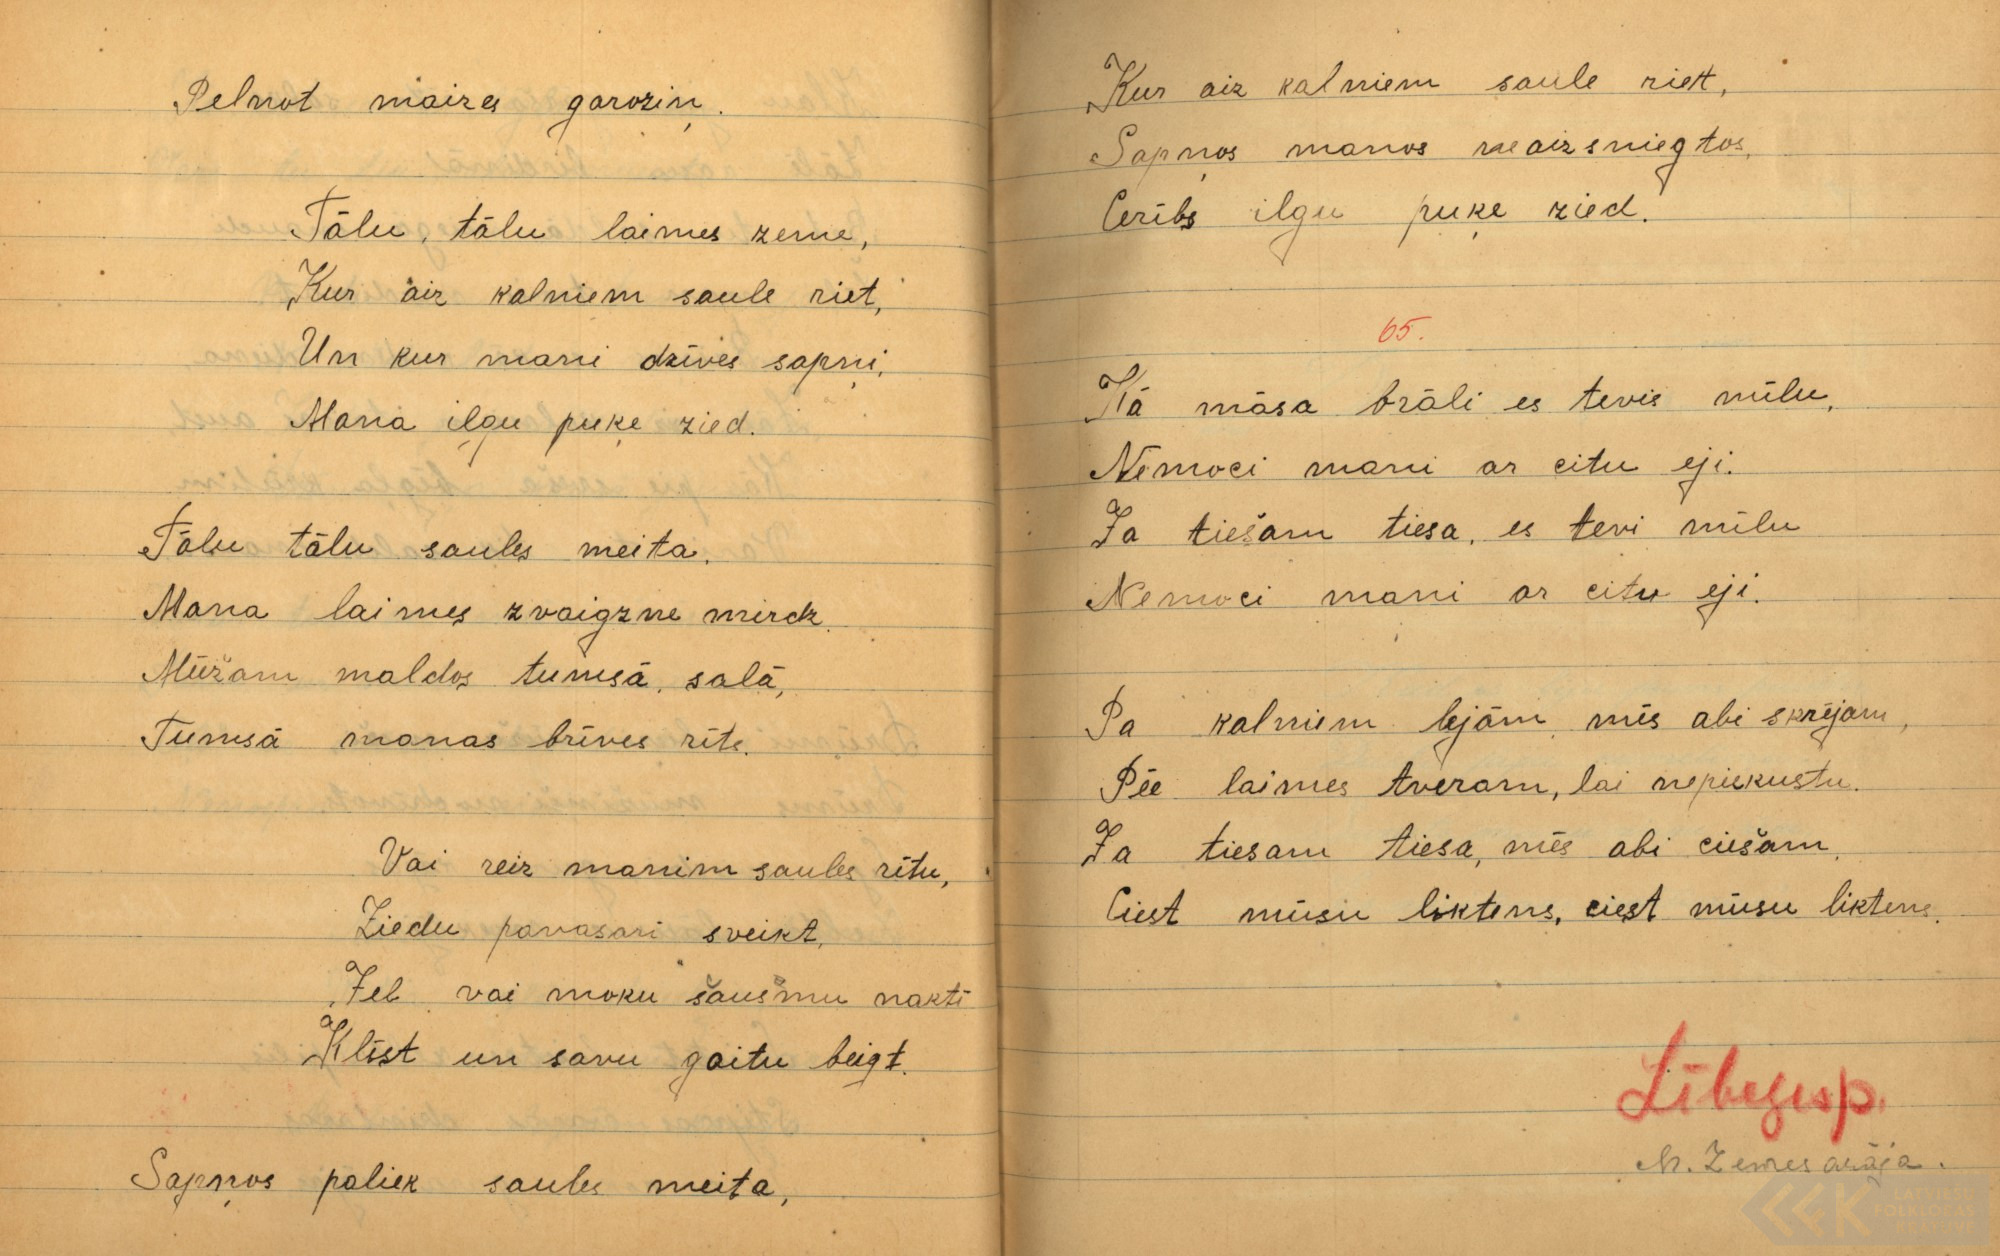 Pelnot maizes garoziņ.
Tālu, tālu laimes zeme,
Kur aiz kalniem saule riet,
Un kur mani dzīves sapņi,
Mana ilgu puķe zied.
Tālu tālu saules meita.
Mana laimes zvaigzne mirdz.
Mūžam maldos tumsā, salā,
Tumsā manas brīves rīts.
Vai reiz manim saules rītu,
Ziedu pavasari sveikt,
Jeb vai moku šausmu naktī
Klīst un savu gaitu beigt.
Sapņos paliek saules meita,
Kur aiz kalniem saule riet,
Sapņos manos neaizsniegtos,
Cerībs ilgu puķe zied.
65.
Kā māsa brāli es tevis mīlu,
Nēmoci mani ar citu eji.
Ja tiešam tiesa, es tevi mīlu
Nemoci mani ar citu eji.
Pa kalniem lejām mēs abi skrējam,
Pēe laimes tveram, lai nepiekustu.
Ja tiesam tiesa, mēs abi ciešam,
Ciest mūsu liktens, ciest mūsu liktens.
M. Zemesarāja.
LATVIEŠU
FOLKLORAS
KRĀTUVE